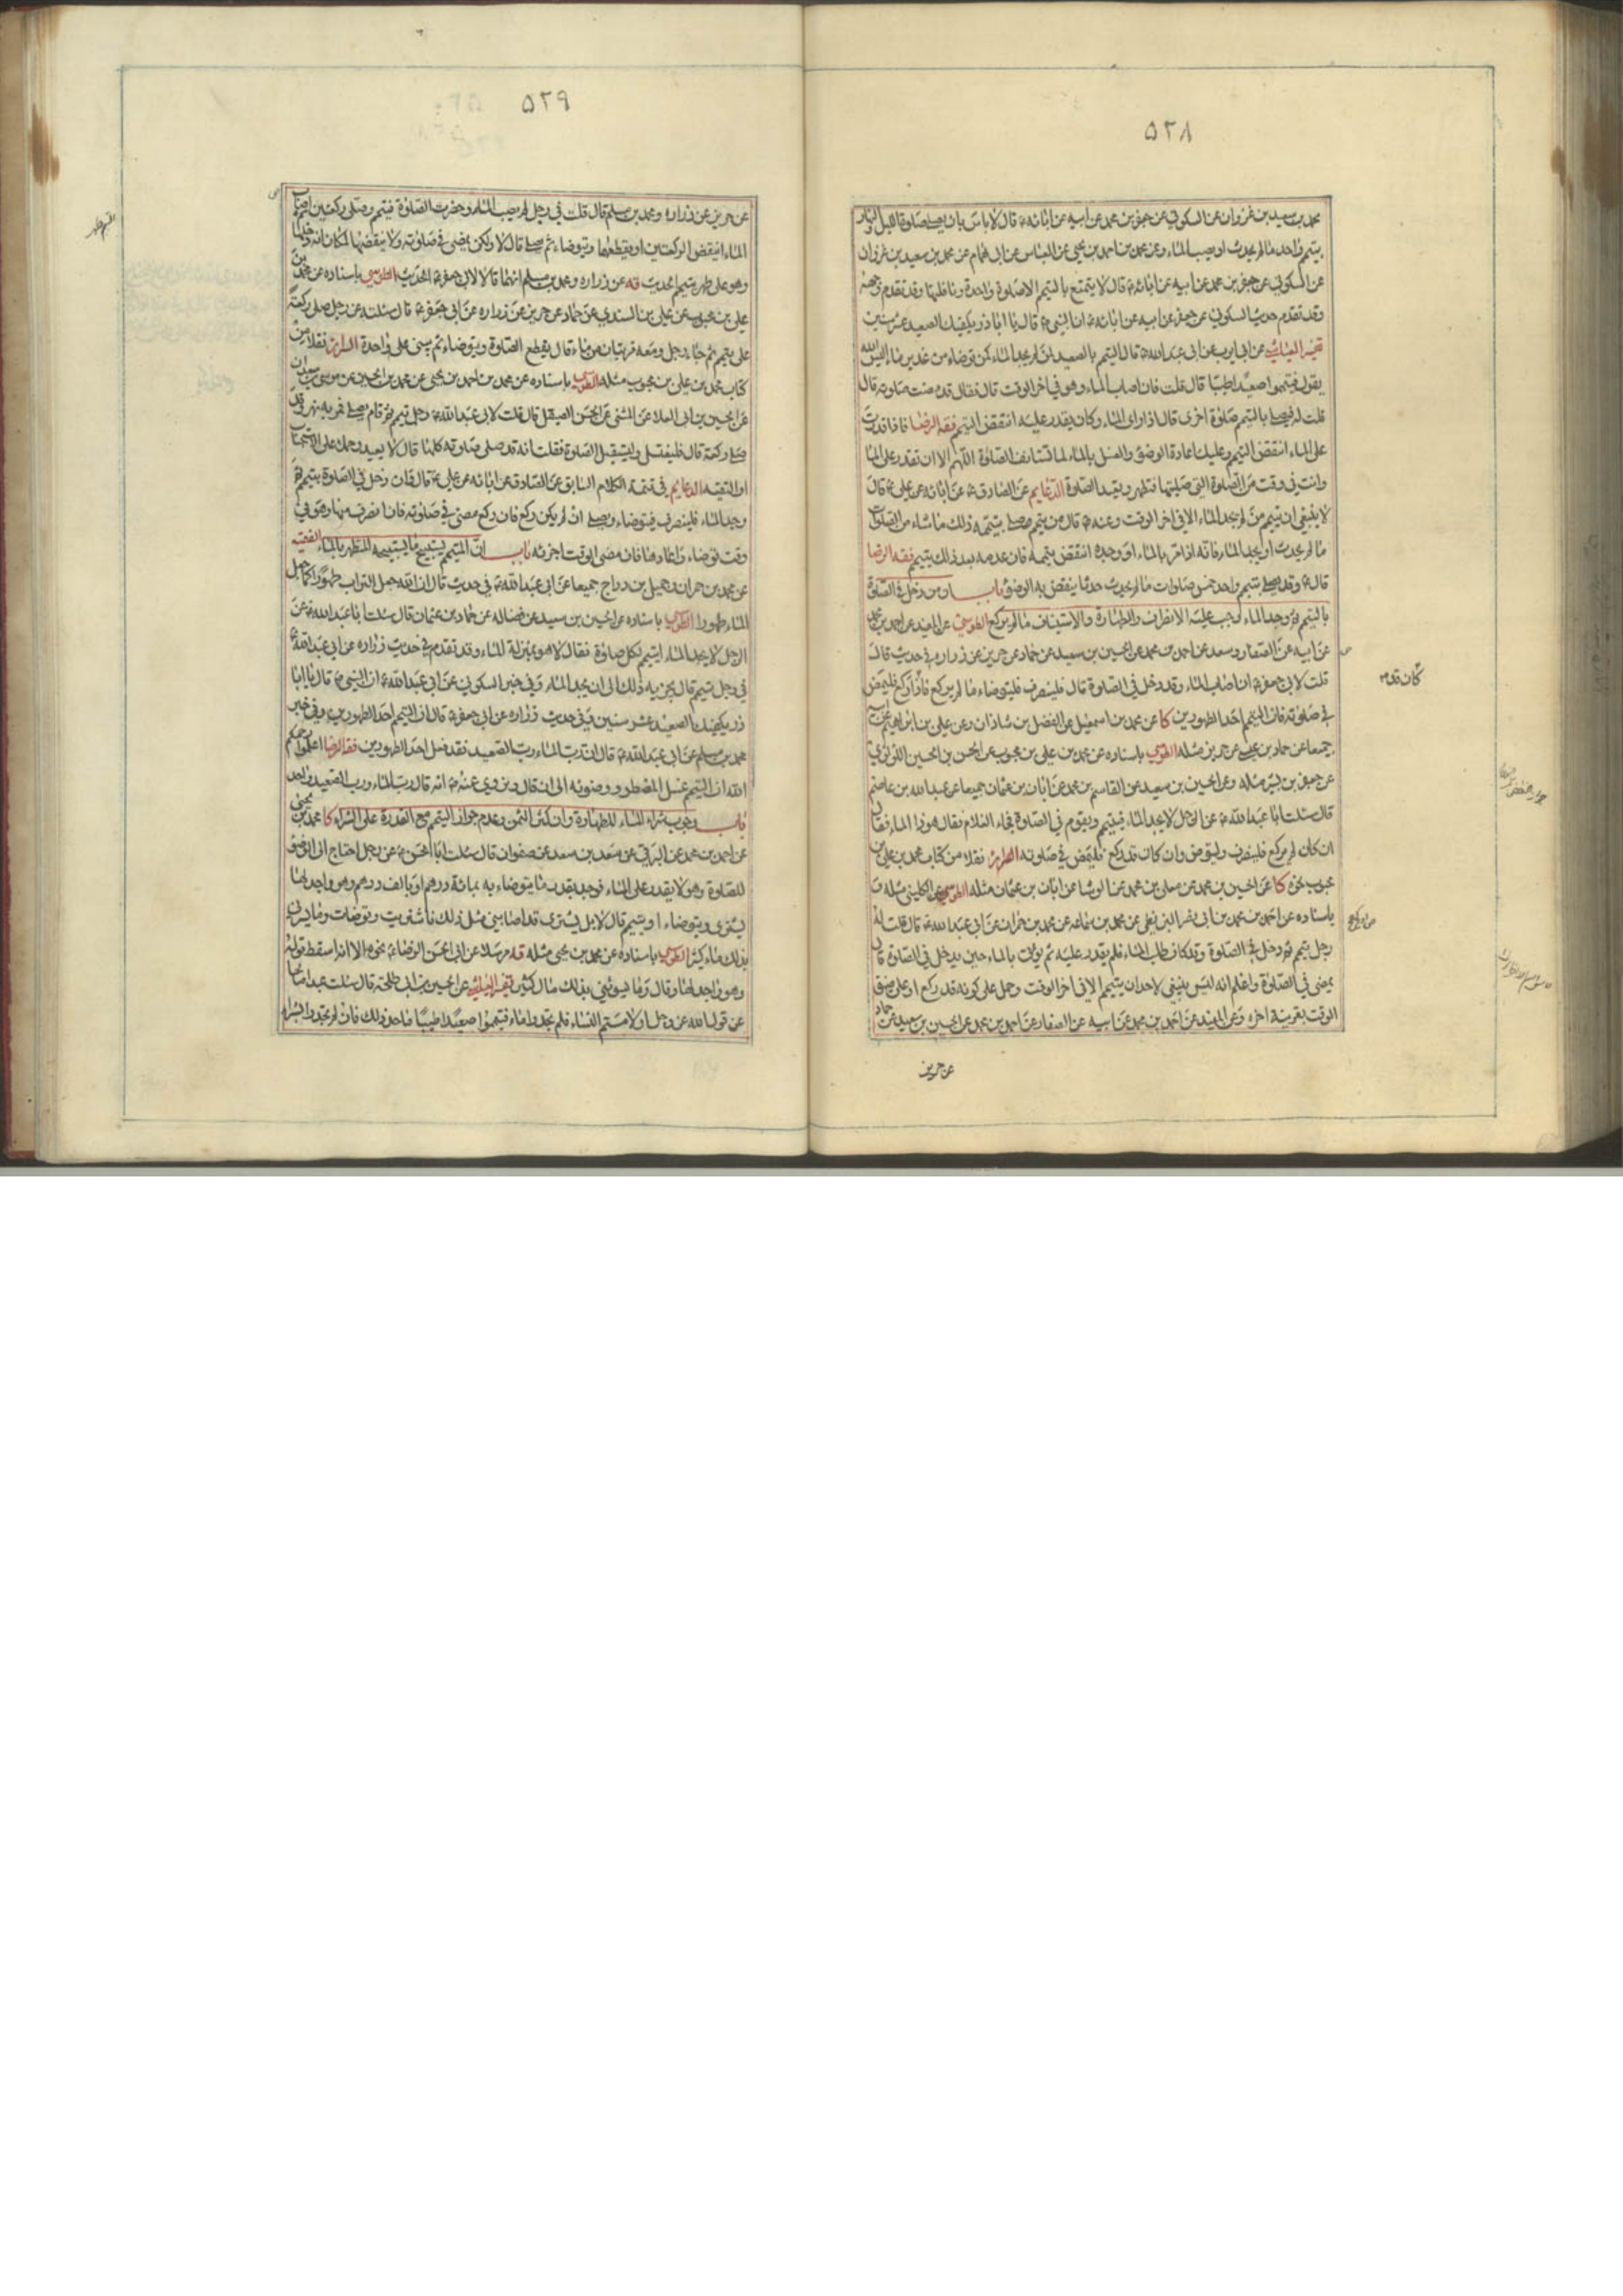 ٥٢٨
محمد بن سعيد بن غزوان عن السكوني عن جعفر بن محمد عن ابيه عن ابائه ع قال لا باس بان يصلي صلوة الليل والنهار
بتيمم واحد ما لم يحدث او يصيب الماء وعن محمد بن احمد بن يحيى عن العباس عن ابي همام عن محمد بن سعيد بن غزوان
عن السكوني عن جعفر بن محمد عن ابيه عن ابائه ع قال لا يتمتع بالتيمم الا صلوة واحدة ونافلتها وقد تقدم وجهه
وقد تقدم حديث السكوني عن جعفر عن ابيه عن ابائه ع ان النبي ص قال يا اباذر يكفيك الصعيد عشر سنين
تفسير العياشي عن ابي ايوب عن ابي عبد الله ع قال التيمم بالصعيد لمن لم يجد الماء كمن توضاء من غدير ماء اليس الله
يقول فتيمموا صعيدا طيبا قال قلت فان اصاب الماء وهو في اخر الوقت قال فقال قد مضت صلوته قال
قلت له فيصلي بالتيمم صلوة اخرى قال اذا راى الماء وكان يقدر عليه انتقض التيمم فقه الرضا فاذا قدرت
على الماء انتقض التيمم وعليك اعادة الوضوء والغسل بالماء لما تستانف الصلوة اللهم الا ان تقدر على الماء
وانت في وقت من الصلوة التي صليتها فتطهر وتعيد الصلوة الدعايم عن الصادق ع عن ابائه عن علي ع قال
لا ينبغي ان يتيمم من لم يجد الماء الا في اخر الوقت وعنه ع قال من تيمم صلى بتيممه ذلك ما شاء من الصلوات
ما لم يحدث او يجد الماء فانه اذا مر بالماء او وجده انتقض تيممه فان عدمه بعد ذلك تيمم فقه الرضا
قال ع وقد يصلي بتيمم واحد خمس صلوات ما لم يحدث حدثا ينقض به الوضوء باب ان من دخل في الصلوة
بالتيمم ثم وجد الماء وجب عليه الانصراف والطهارة والاستيناف ما لم يركع الطوسي عن المفيد عن احمد بن محمد
عن ابيه عن الصفار وسعد عن احمد بن محمد عن الحسين بن سعيد عن حماد عن حريز عن زراره في حديث قال
قلت لابي جعفر ع ان اصاب الماء وقد دخل في الصلوة قال فلينصرف فليتوضاء ما لم يركع فاذا ركع فليمض
في صلوته فان التيمم احد الطهورين كا عن محمد بن اسمعيل عن الفضل بن شاذان وعن علي بن ابراهيم عن ابيه
جميعا عن حماد بن عيسى عن حريز مثله الطوسي باسناده عن محمد بن علي بن محبوب عن الحسن بن الحسين اللؤلؤي
عن جعفر بن بشير مثله وعن الحسين بن سعيد عن القاسم بن محمد عن ابان بن عثمان جميعا عن عبد الله بن عاصم
قال سئلت ابا عبد الله ع عن الرجل لا يجد الماء فيتيمم ويقوم في الصلوة فجاء الغلام فقال هوذا الماء فقال
ان كان لم يركع فلينصرف وليتوض وان كان قد ركع فليمض في صلوته السرائر نقلا من كتاب محمد بن علي بن
محبوب نحوه كا عن الحسين بن محمد عن معلى بن محمد عن الوشا عن ابان بن عثمان مثله الطوسي عن الكليني مثله و
باسناده عن احمد بن محمد بن ابي نصر البزنطي عن محمد بن سماعه عن محمد بن حمران عن ابي عبد الله ع قال قلت له
رجل تيمم ثم دخل في الصلوة وقد كان طلب الماء فلم يقدر عليه ثم يؤتى بالماء حين يدخل في الصلوة قال
يمضي في الصلوة واعلم انه ليس ينبغي لاحد ان يتيمم الا في اخر الوقت وحمل على كونه قد ركع او على ضيق
الوقت بقرينة اخره وعن المفيد عن احمد بن محمد عن ابيه عن الصفار عن احمد بن محمد عن الحسين بن سعيد عن حماد
عن حريز
كان قدم
٥٢٩
عن حريز عن زراره ومحمد بن مسلم قال قلت في رجل لم يصب الماء وحضرت الصلوة فتيمم وصلى ركعتين ثم اصاب
الماء اينقض الركعتين او يقطعهما ويتوضاء ثم يصلي قال لا ولكن يمضي في صلوته ولا ينقضها لمكان انه دخلها
وهو على طهر بتيمم الحديث فه عن زراره ومحمد بن مسلم انهما قالا لابي جعفر ع الحديث الطوسي باسناده عن محمد بن
علي بن محبوب عن علي بن السندي عن حماد عن حريز عن زراره عن ابي جعفر ع قال سئلته عن رجل صلى ركعة
على تيمم ثم جاء رجل ومعه قربتان من ماء قال يقطع الصلوة ويتوضاء ثم يبني على واحدة السرائر نقلا من
كتاب محمد بن علي بن محبوب مثله الطوسي باسناده عن محمد بن احمد بن يحيى عن محمد بن الحسين عن موسى بن سعدان
عن الحسين بن ابي العلا عن المثنى عن الحسن الصيقل قال قلت لابي عبد الله ع رجل تيمم ثم قام يصلي فمر به نهر وقد
صلى ركعة قال فليغتسل وليستقبل الصلوة فقلت انه قد صلى صلوته كلها قال لا يعيد وحمل على الاستحباب
او التقيه الدعايم في تتمة الكلام السابق عن الصادق عن ابائه عن علي ع قال فان دخل في الصلوة بتيمم ثم
وجد الماء فلينصرف فيتوضاء ويصلي ان لم يكن ركع فان ركع مضى في صلوته فان انصرف منها وهو في
وقت توضاء واعاد ها فان مضى الوقت اجزئه باب ان المتيمم يستبيح ما يستبيحه المتطهر بالماء الفقيه
عن محمد بن حمران وجميل بن دراج جميعا عن ابي عبد الله ع في حديث قال ان الله جعل التراب طهورا كما جعل
الماء طهورا الطوسي باسناده عن الحسين بن سعيد عن فضاله عن حماد بن عثمان قال سئلت ابا عبد الله ع عن
الرجل لا يجد الماء ايتيمم لكل صلوة فقال لا هو بمنزلة الماء وقد تقدم في حديث زراره عن ابي عبد الله ع
في رجل تيمم قال يجزيه ذلك الى ان يجد الماء وفي خبر السكوني عن ابي عبد الله ع ان النبي ص قال يا ابا
ذر يكفيك الصعيد عشر سنين وفي حديث زراره عن ابي جعفر ع قال ان التيمم احد الطهورين وفي خبر
محمد بن مسلم عن ابي عبد الله ع قال ان رب الماء رب الصعيد فقد فعل احد الطهورين فقه الرضا اعلموا رحمكم
الله ان التيمم غسل المضطر ووضوئه الى ان قال وروي عنه ع انه قال رب الماء ورب الصعيد واحد
باب وجوب شراء الماء للطهارة وان كثر الثمن وعدم جواز التيمم مع القدرة على الشراء كا محمد بن يحيى
عن احمد بن محمد عن البرقي عن سعد بن سعد عن صفوان قال سئلت ابا الحسن ع عن رجل احتاج الى الوضوء
للصلوة وهو لا يقدر على الماء فوجد بقدر ما يتوضاء به بمائة درهم او بالف درهم وهو واجد لها
يشتري ويتوضاء او يتيمم قال لا بل يشتري قد اصابني مثل ذلك فاشتريت وتوضات وما يسرني
بذلك مال كثير الطوسي باسناده عن محمد بن يحيى مثله فه مرسلا عن ابي الحسن الرضا ع نحوه الا انه اسقط قوله
وهو واجد لها وقال وما يسوئني بذلك مال كثير تفسير العياشي عن الحسين بن ابي طلحة قال سئلت عبدا صالحا
عن قول الله عز وجل او لامستم النساء فلم تجدوا ماء فتيمموا صعيدا طيبا ما حد ذلك فان لم تجدوا بشراء